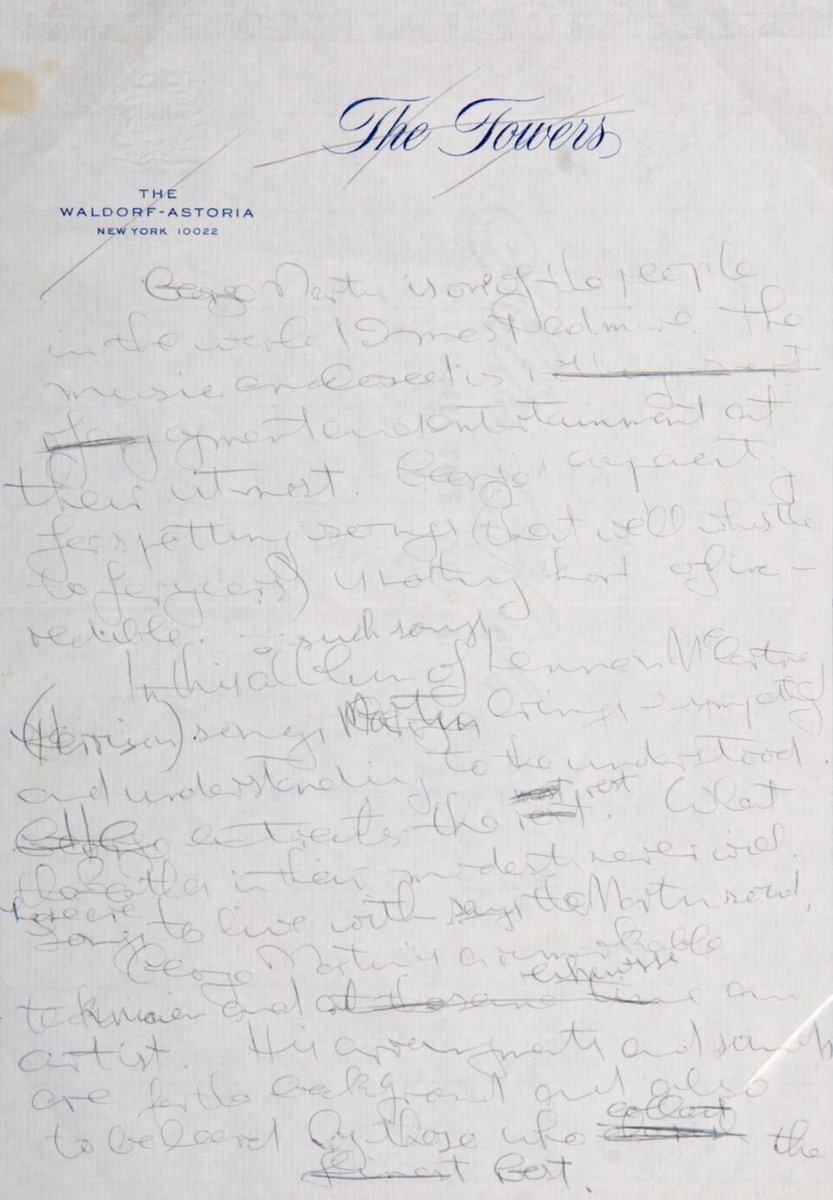 The Towers
THE
WALDORF-ASTORIA
NEW YORK 10022
George Martin is one of the people
in the world I most admire. The
music enclosed is
enjoyment and entertainment at
their utmost. George's capacity
for spotting songs (that we'll whistle
to for years) is nothing short of inc-
redible. such songs
In this album of Lennon McCartney
(Harrison) songs, Martin brings sympathy
and understanding to the understood.
George extracts the rest. What
the in their modesty never will.
songs to live with says the Martin
George Martin is a remarkable
technician and at the same time likewise an
artist. His arrangements and sounds
are for the background and also
to be heard by those who collect the
finest best.